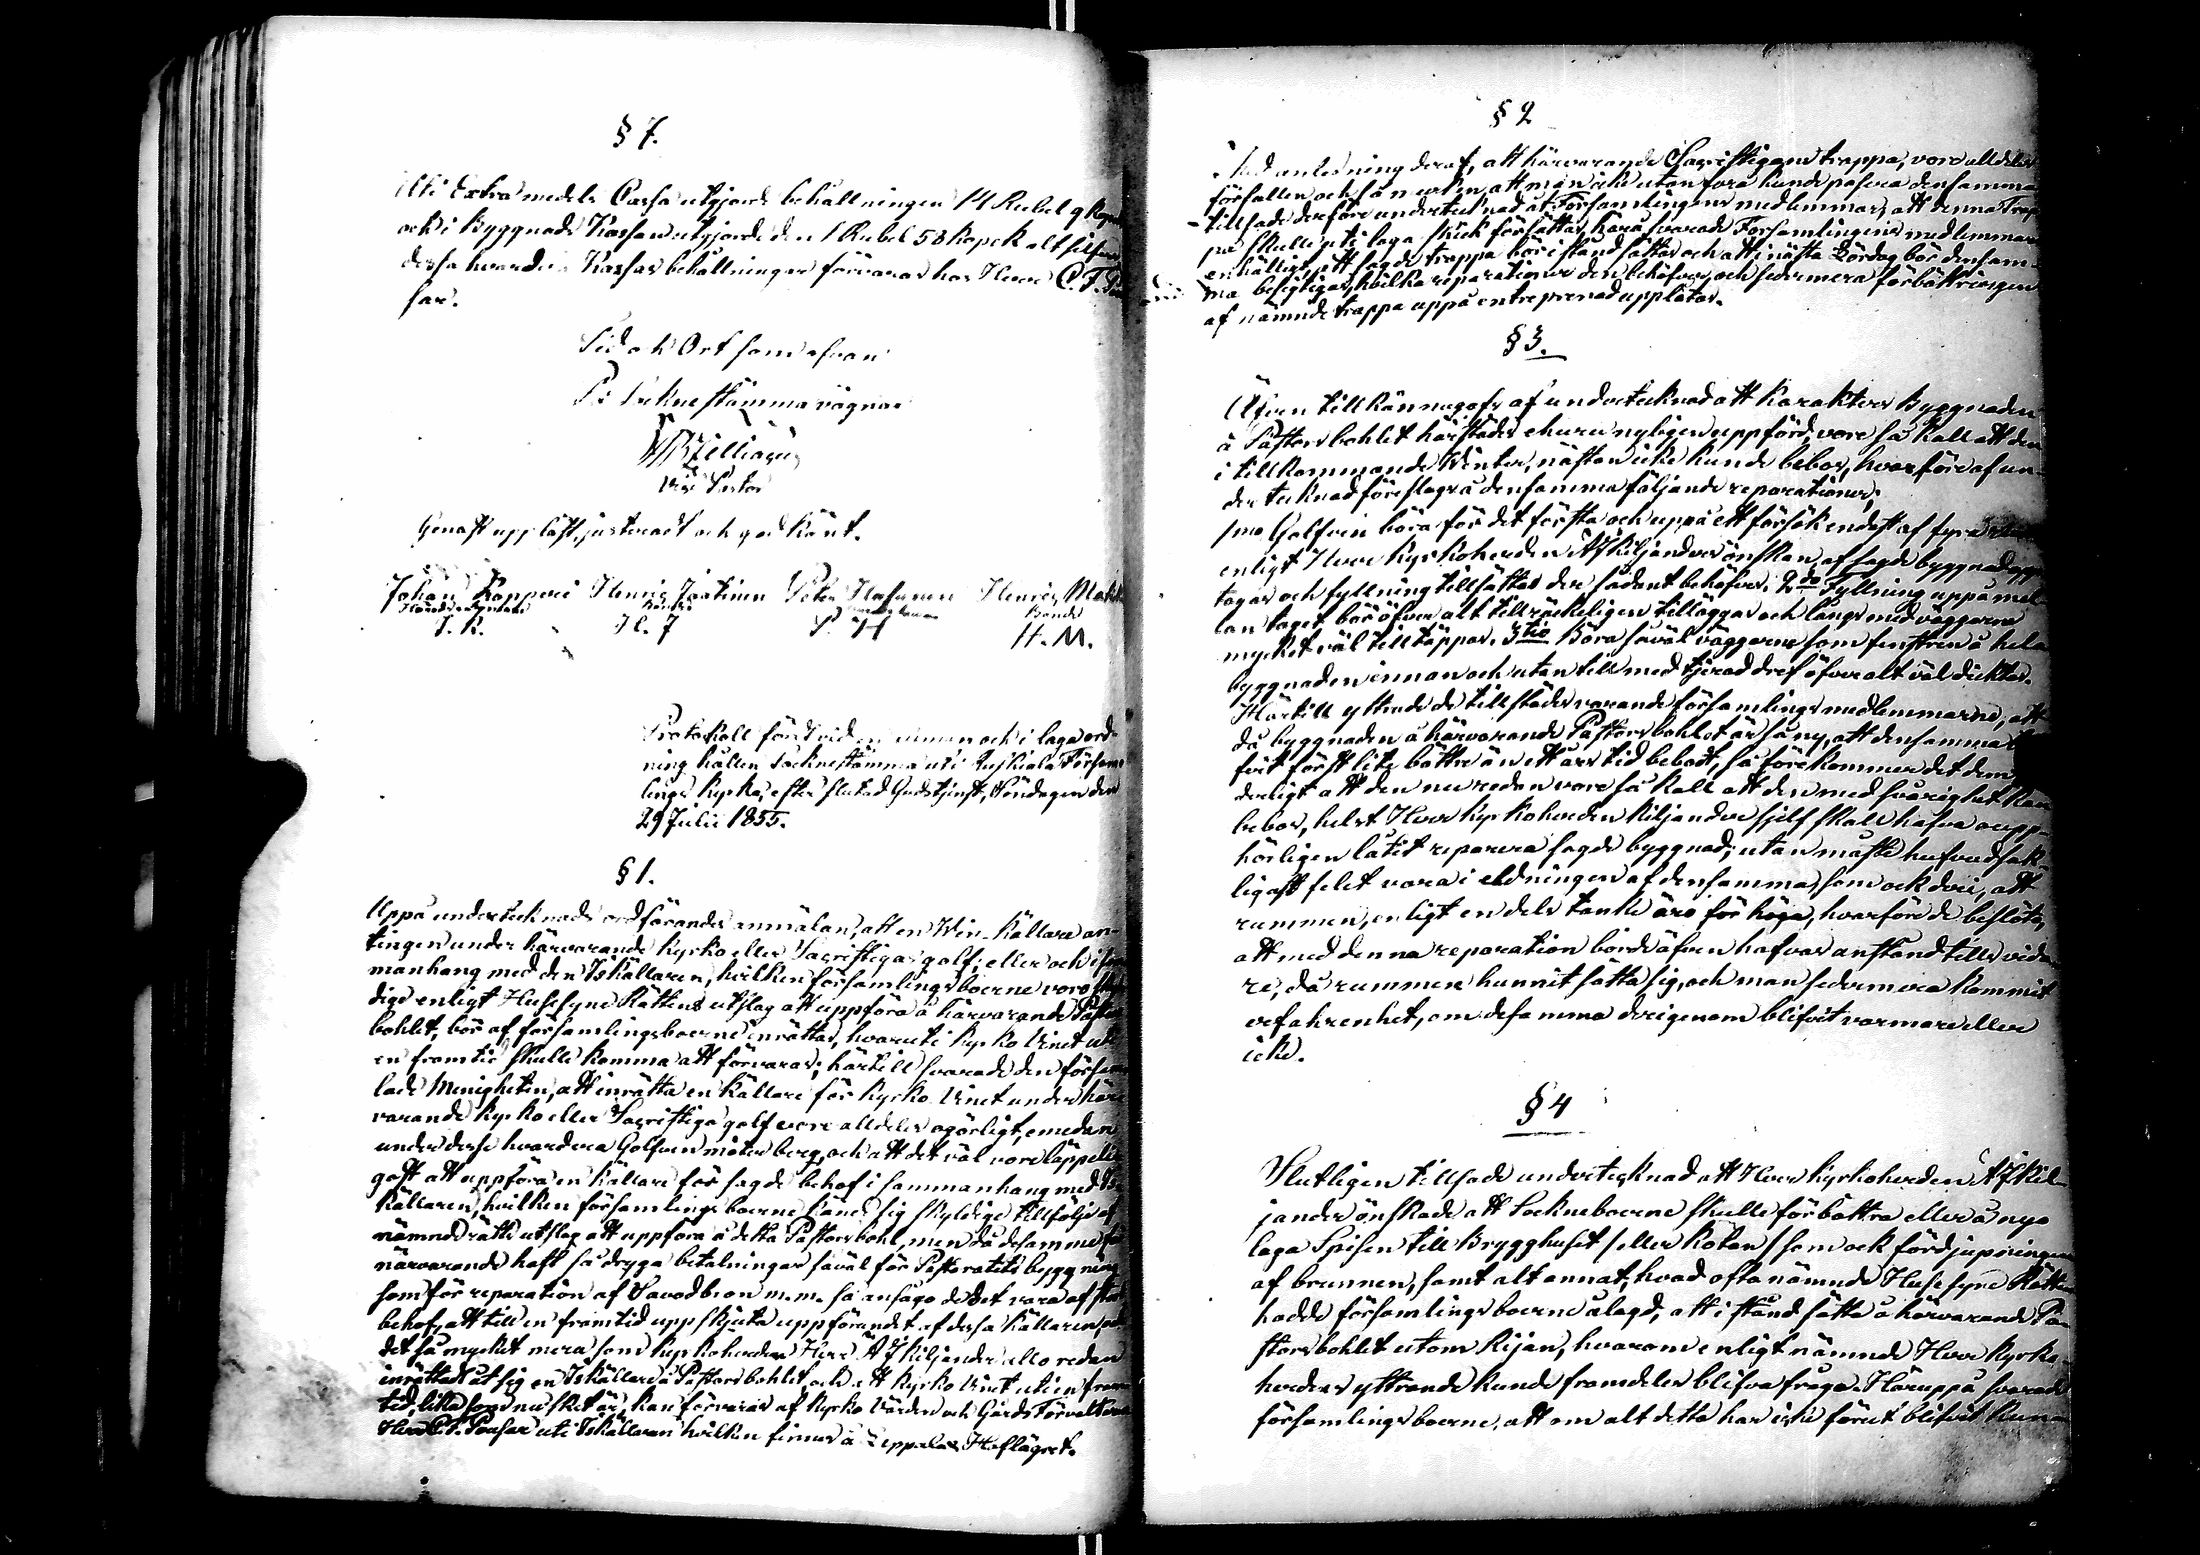 § 7.
Uti Extra medels Cassa utgjorde behållningen 14 Rubel 9 Kopek
och i Byggnads Kassan utgjorde den 1 Rubel 58 Kopek alt silfver
dessa hvardera Kassas behållningar förvaras hos Herr C. F.
far.
Tid och Ort som ofvan
På Sockne stämma vägnar
Vice Pastor
Genast uppläst, justeradt och godkänt.
Johan Kopponen Henric Jantinen Peter Hasunen Henric
Bonde Bonde
J. K. H. J P. H H. M.
Protokoll fördt vid en allmän och i laga ord-
ning hållen Sockne stämma uti Ruskiala Församl
lings Kyrka, efter slutad Gudstjenst, Söndagen den
29 Julii 1855.
§ 1.
Uppå undertecknads ordförandes anmälan, att en Win-källare an-
tingen under härvarande Kyrko eller Sacristigas golf; eller och i sam
manhang med den Iskällaren, hvilken församlings boerne voro skyl
dige enligt Husesyns Rättens utslag att uppföra å härvarande Pastors
bohlet, bör af församlingsboerne inrättas, hvaruti Kyrko Vinet uti
en framtid skulle komma att förvaras; härtill svarade den försam
lade Menigheten, att inrätta en källare för Kyrko Vinet under här
varande Kyrko eller Sacristiga golf vore alldeles ogörligt, emedan
under desse hvardera Golfven möter berg, och att det väl vore läppeli
gast att uppföra en källare för sagde behof i sammanhang med Is
källaren, hvilken församlings boerne känna sig skyldige till följe af
nämnde rätts utslag att uppföra å detta Pastorsbohl, men då desamme för
närvarande haft så dryga betalningar såväl för Pastoratets byggning
som för reparation af Savodbron m.m. så ansågo de det vara af stort
behof, att till en framtid uppskjuta uppförandet af dessa källaren, och
det så mycket mera som Kyrkoherden Herr A F Kiljander allo redan
inrättadt åt sig en Iskällare å Pastorsbohlet och att Kyrko Vinet uti en fram
tid, lika som nu skett är, kan förvaras af Kyrko Värden och Gårds Förvaltaren
Herr C. F. uti Iskällaren hvilken finnes å Leppälax Hoflägret.
§ 2
Med anledning deraf, att härvarande Sacristigans trappa, vore alldeles
förfallen och så murken, att man icke utan fara kunde passera densamma
tillsade derföre undertecknad åt Församlingens medlemmar, att denna Trap
pa skulle uti laga skick försättas, hvarå svarade Församlingens medlemmar
enhälligt, att sagde trappa bör i stånd sättas och att i nästa Lördag bör densam-
ma besigtigas, hvilka reparationer den behöfver, och sedermera förbättringen
af nämnde trappa uppå entreprenad upplåtas.
§ 3.
Äfven tillkännagafs af undertecknad att Karakters Byggnaden
å Pastors bohlet härstädes ehuru nyligen uppförd, vore så kall att den
i tillkommande Winter, nästan icke kunde bebos, hvarföre af un-
dertecknad föreslogs å densamma följande reparationer;
1mo Golfven böra för det första och uppå ett försök endast af fyra
enligt Herr Kyrkoherden A F Kiljanders önskan, af sagde byggnad upp
tagas och fyllning tillsättas der sådant behöfves. 2do Fyllning uppå mel
lan taget bör öfver alt tillräckeligen tilläggas och längs med väggarne
mycket väl tilltäppas. 3tio Böra såväl väggarne som fenstren å hela
byggnaden innan och utantill med tjärad dref öfveralt väl dicktas.
Härtill yttrade de tillstädesvarande församlings medlemmarne, att
då byggnaden å härvarande Pastors bohlet är så ny, att densamma
fvit först lite bättre än ett års tid bebodt, så förekommer det dem
derligt att den nu redan vore så kall att den med svårighet kan
bebos, helst Herr Kyrkoherden Kiljander sjelf skall hafva oupp-
hörligen låtit reparera sagde byggnad; utan måste hufvudsak-
ligast felet vara i eldningen af densamma, som ock deri, att
rummen, enligt en dels tanke äro för höga, hvarföre de beslöto,
att med denna reparation borde äfven hafvas anstånd tills vida
re, då rummen hunnit sätta sig, och man sedermera kommit
erfahrenhet, om desamma derigenom blifvit varmare eller
icke.
§ 4
Slutligen tillsade undertecknad att Herr Kyrkoherden A F Kil-
jander önskade att Sockneboerne skulle förbättra eller å nyo
laga Spisen till Brygghuset /eller Kotan/ som ock fördjupningen
af brunnen, samt alt annat, hvad ofta nämnde Husesyns Rätten
hade församlings boerne ålagd, att i stånd sätta å härvarande Pa-
storsbohlet utom Rijan, hvarom enligt nämnde Herr Kyrko-
herdens yttrande kunde framdeles blifva fråga. Häruppå svarade
församlings boerne, att om alt detta har icke förut blifvit kun-